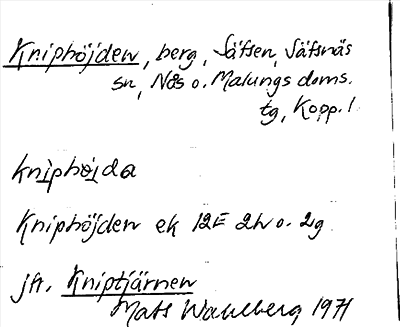 Kniphöjden, berg, Säfsen, Säfsnäs
sn, Nås o. Malungs doms.
tg, Kopp. l.
kniphöjda
Kniphöjden ek 12E 2h o. 2g
jfr. Kniptjärnen
Mats Wahlberg 1971